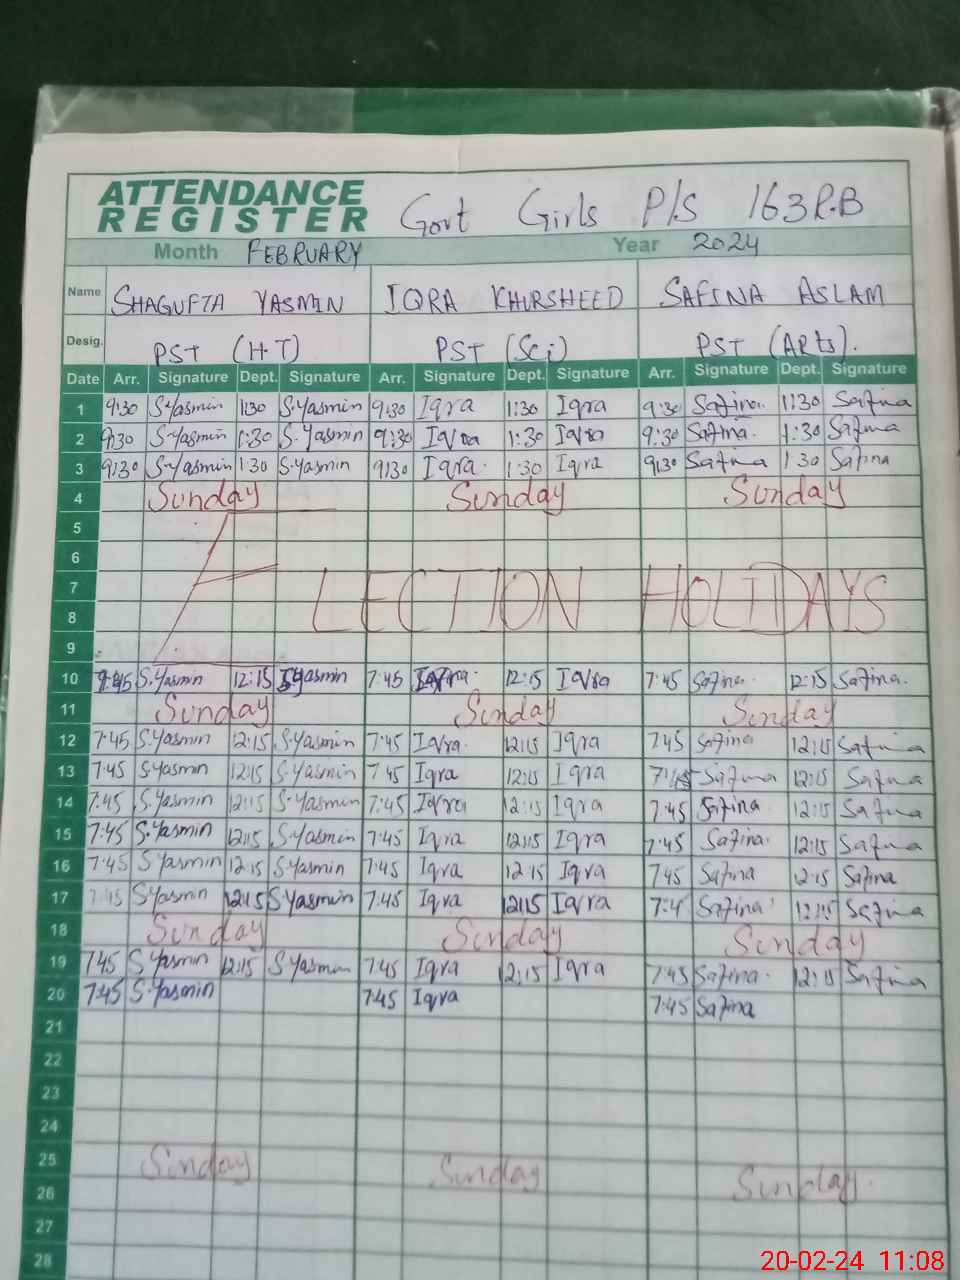 ATTENDANCE
REGISTER
Govt Girls P/S 163 R.B
Month FEBRUARY Year 2024
Name SHAGUFTA YASMIN IQRA KHURSHEED SAFINA ASLAM
Desig. PST (H.T) PST (Sci) PST (ARts).
Date Arr. Signature Dept. Signature Arr. Signature Dept. Signature Arr. Signature Dept. Signature
1 9:30 S.Yasmin 1:30 S.Yasmin 9:30 Iqra 1:30 Iqra 9:30 Safina 1:30 Safina
2 9:30 S.Yasmin 1:30 S.Yasmin 9:30 Iqra 1:30 Iqra 9:30 Safina 1:30 Safina
3 9:30 S.Yasmin 1:30 S.Yasmin 9:30 Iqra 1:30 Iqra 9:30 Safina 1:30 Safina
4 Sunday Sunday Sunday
5
6
7 ELECTION HOLIDAYS
8
9
10 7:45 S.Yasmin 12:15 S.Yasmin 7:45 Iqra 12:15 Iqra 7:45 Safina 12:15 Safina
11 Sunday Sunday Sunday
12 7:45 S.Yasmin 12:15 S.Yasmin 7:45 Iqra 12:15 Iqra 7:45 Safina 12:15 Safina
13 7:45 S.Yasmin 12:15 S.Yasmin 7:45 Iqra 12:15 Iqra 7:45 Safina 12:15 Safina
14 7:45 S.Yasmin 12:15 S.Yasmin 7:45 Iqra 12:15 Iqra 7:45 Safina 12:15 Safina
15 7:45 S.Yasmin 12:15 S.Yasmin 7:45 Iqra 12:15 Iqra 7:45 Safina 12:15 Safina
16 7:45 S.Yasmin 12:15 S.Yasmin 7:45 Iqra 12:15 Iqra 7:45 Safina 12:15 Safina
17 S.Yasmin 12:15 S.Yasmin 7:45 Iqra 12:15 Iqra 7:4 Safina 12:15 Safina
18 Sunday Sunday Sunday
19 7:45 S.Yasmin 12:15 S.Yasmin 7:45 Iqra 12:15 Iqra 7:45 Safina 12:15 Safina
20 7:45 S.Yasmin 7:45 Iqra 7:45 Safina
21
22
23
24
25 Sunday Sunday Sunday
26
27
28
20-02-24 11:08